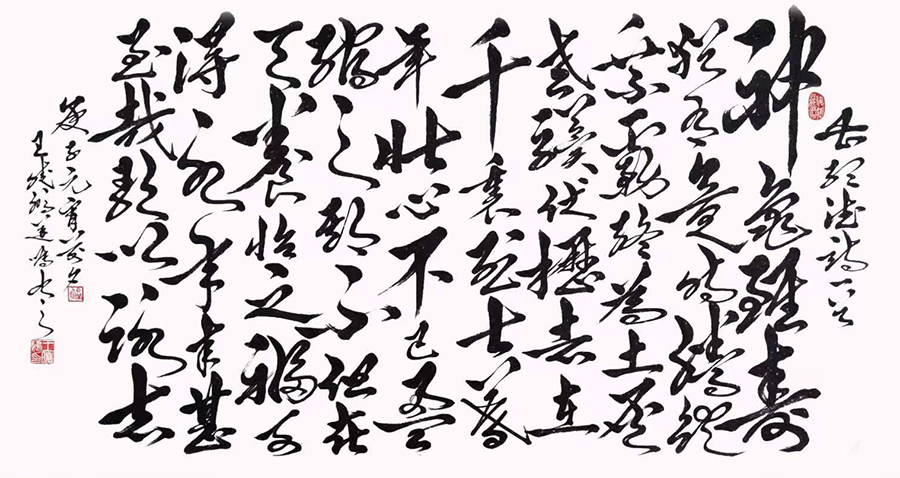 神龜雖壽
猶有竟時騰蛇
乘霧終為土灰
老驥伏櫪志在
千里烈士暮
年壯心不已盈
縮之期不但在
天養怡之福可
得永年幸甚
至哉歌以詠志
庚子元宵